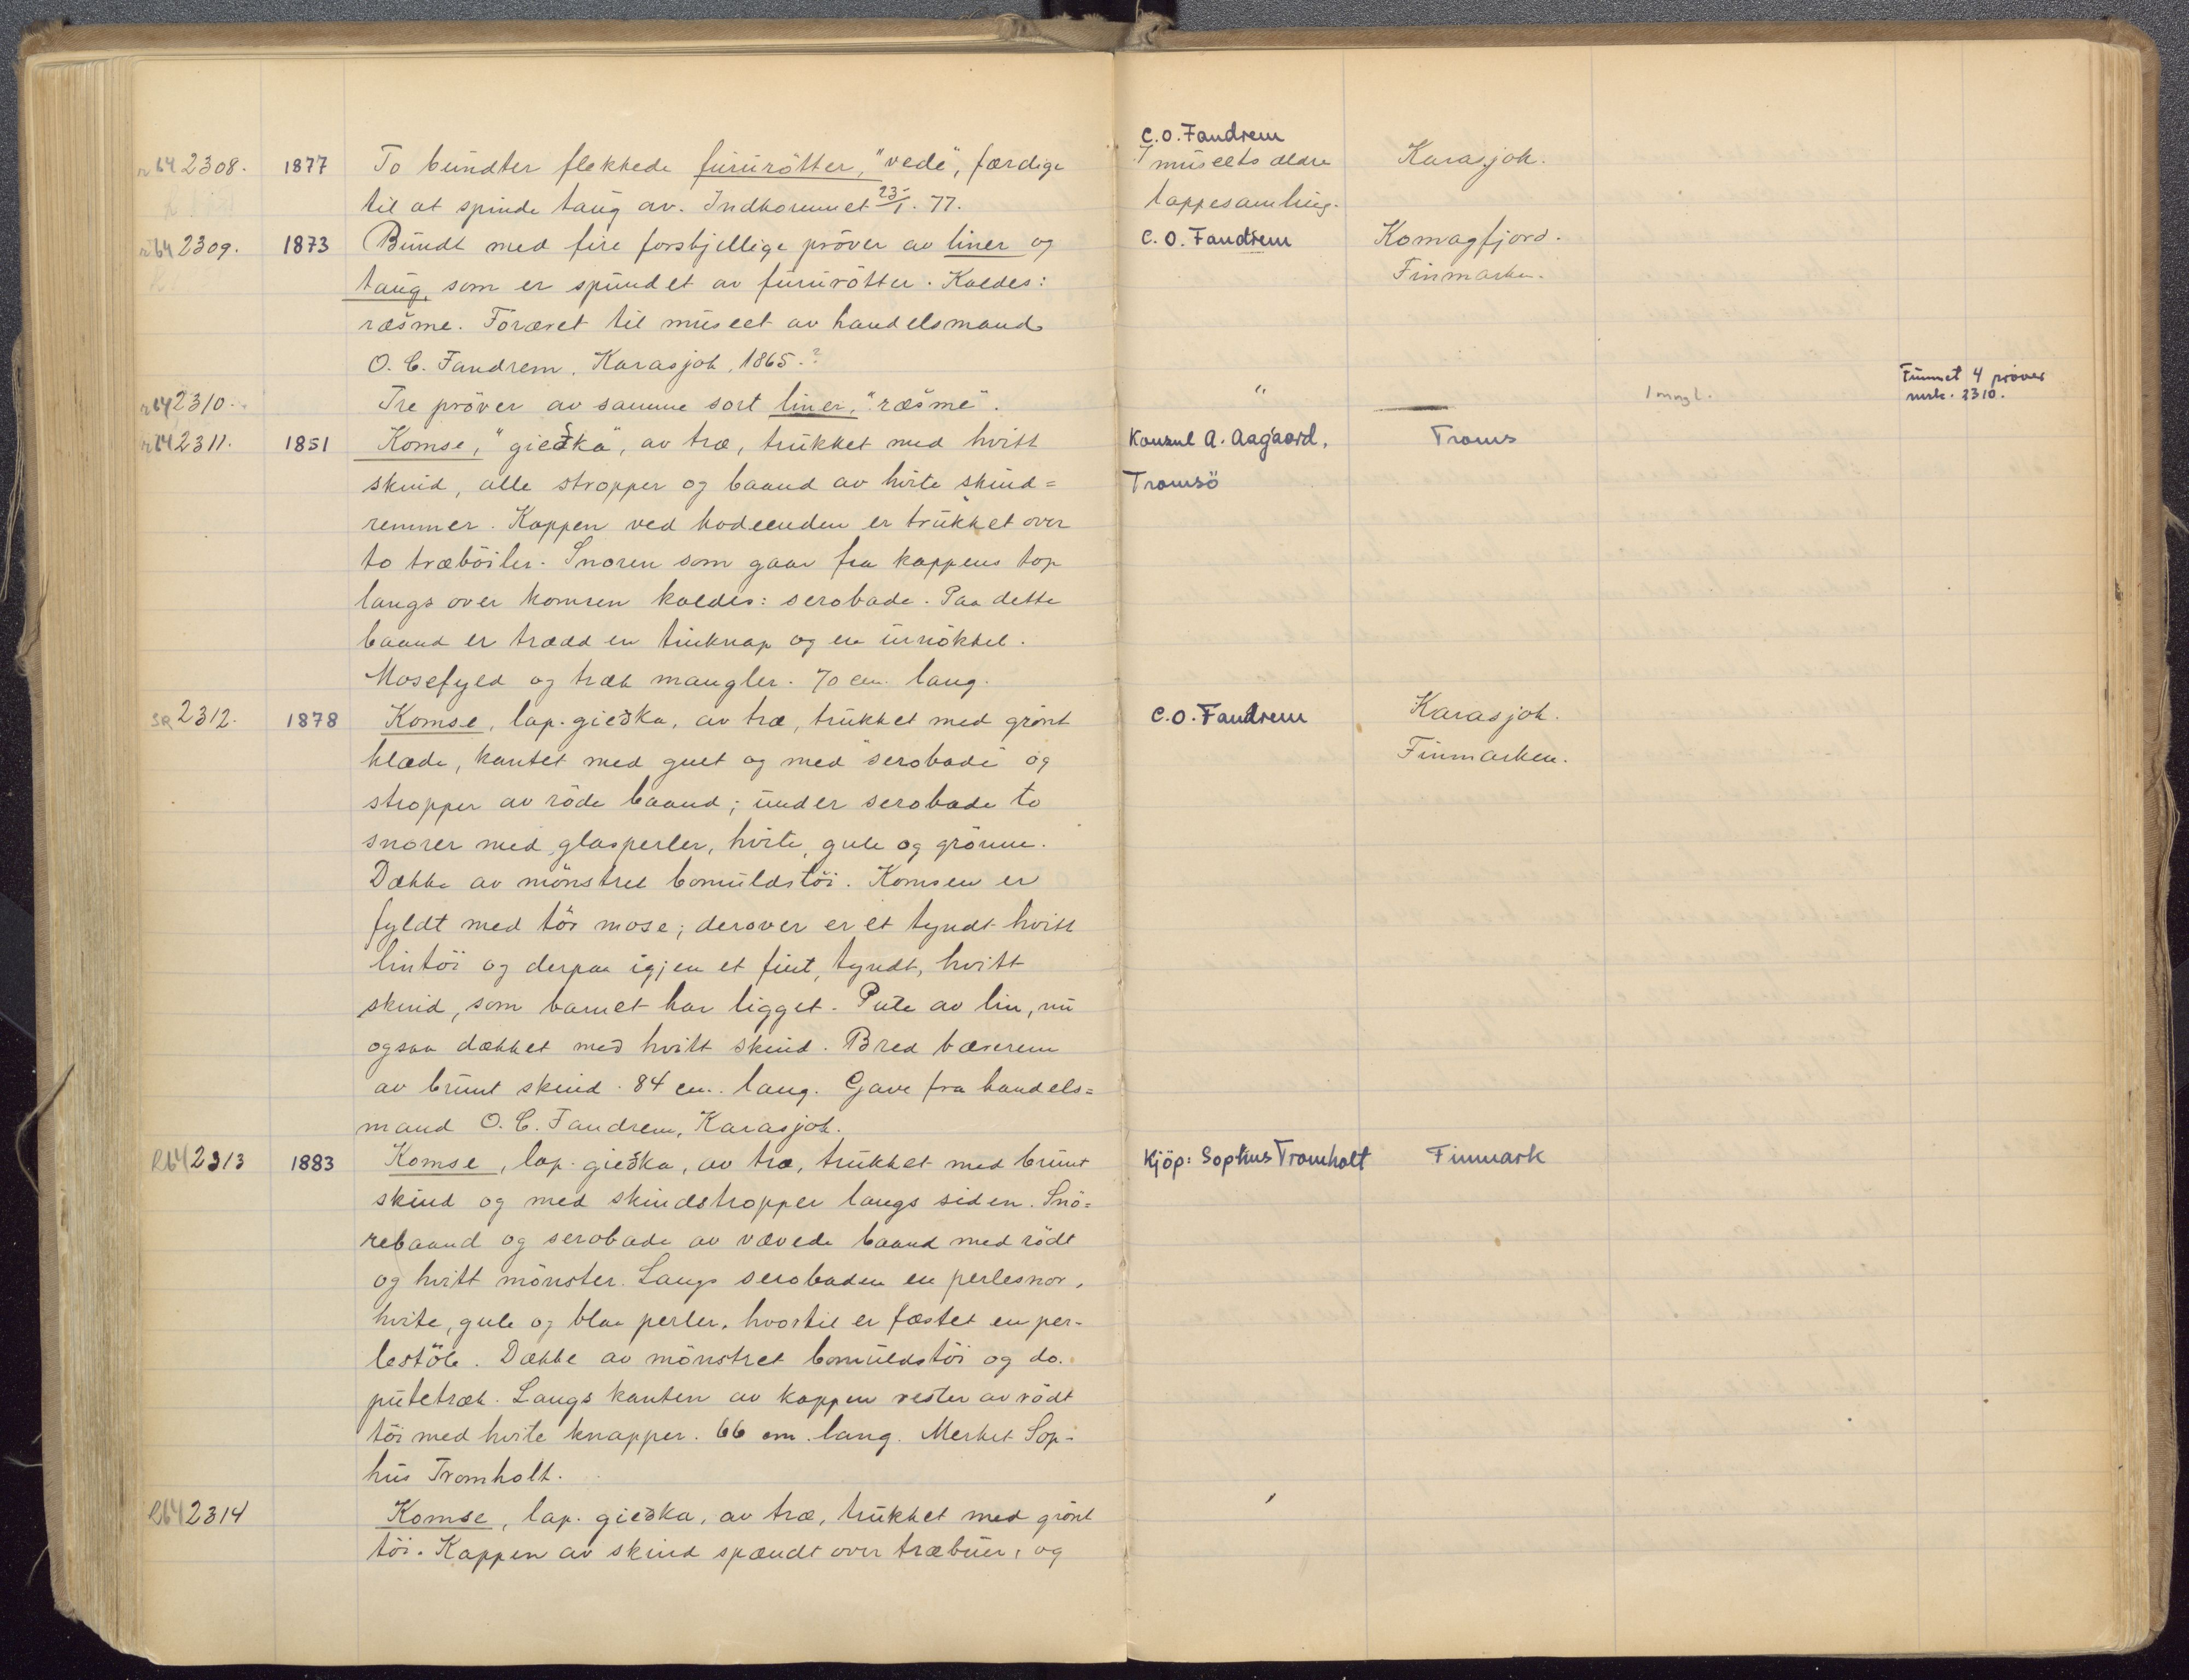 C.O. Fandrem
r64 2308. 1877 To bundter flekkede furúrötter, "vede", færdige Museets ældre Karasjok.
til at spinde taúg av. Indkommet 23/1. 77. lappesamling.
r64 2309. 1873 Búndt med fire forskjellige pröver av liner og C.O. Fandrem Komagfjord.
taúg, som er spúndet av fúrúrötter. Kaldes: Finmarken.
ræšme. Foræret til múseet av handelsmand
O. C. Fandrem, Karasjok, 1865.?
r64 2310. Tre pröver av samme sort liner, "ræšme". " — 1 mngl. Funnet 4 pröver
merk. 2310.
r64 2311. 1851 Komse, "gieðka", av træ, trúkket med hvitt Konsul A. Aagaard, Troms
skind, alle stropper og baand av hvite skind= Tromsö
remmer. Kappen ved hodeenden er trúkket over
to træböiler. Snoren som gaar fra kappens top
langs over komsen kaldes: serobade. Paa dette
baand er trædd en tinknap og en úrnökkel.
Mosefyld og træk mangler. 70 cm. lang.
SR 2312. 1878 Komse, lap. gieðka, av træ, trúkket med grönt C.O. Fandrem Karasjok.
klæde, kantet med gult og med "serobade" og Finmarken.
stropper av röde baand; únder serobade to
snorer med glasperler, hvite, gule og grönne.
Dække av mönstret bomúldstöi. Komsen er
fyldt med tör mose; derover er et tyndt hvitt
lintöi og derpaa igjen et fint, tyndt, hvitt
skind, som barnet har ligget. Pute av lin, nú
ogsaa dækket med hvitt skind. Bred bærerem
av brúnt skind. 84 cm. lang. Gave fra handels=
mand O. C. Fandrem, Karasjok.
R64 2313 1883 Komse, lap. gieðka, av træ, trúkket med brúnt Kjöp: Sophus Tromholt Finmark
skind og med skindstropper langs siden. Snö=
rebaand og serobade av vævede baand med rödt
og hvitt mönster. Langs serobaden en perlesnor,
hvite, gule og blaa perler, hvortil er fæstet en per-
lestök. Dække av mönstret bomúldstöi og do.
pútetræk. Langs kanten av kappen rester av rödt
töi med hvite knapper. 66 cm. lang. Merket Sop-
hús Tromholt.
R64 2314 Komse, lap. gieðka, av træ, trúkket med grönt
töi. Kappen av skind spændt over træbúer, og